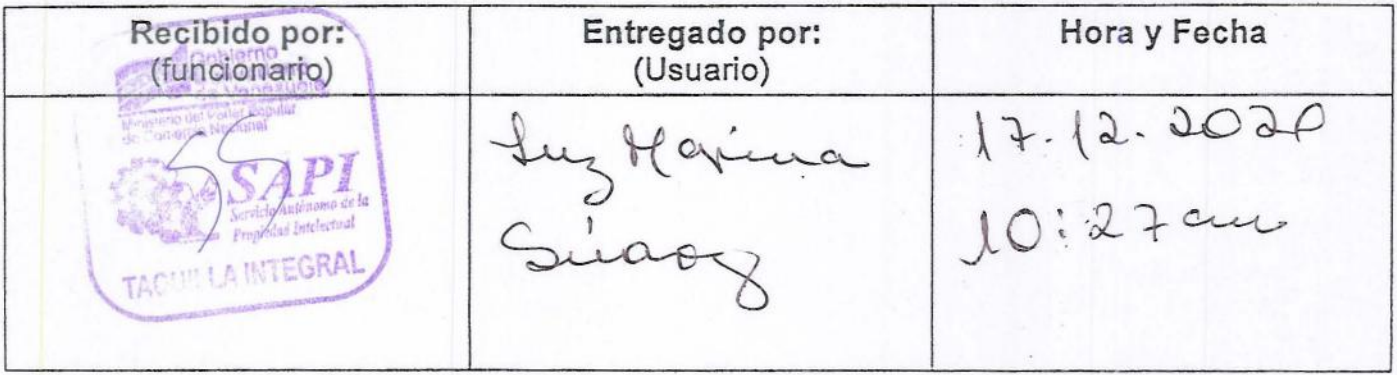 Recibido por:
(funcionario)
Entregado por:
(Usuario)
Hora y Fecha
Gobierno
de Venezuela
Ministerio del Poder Popular
de Comercio Nacional
SAPI
Servicio Autónomo de la
Propiedad Intelectual
TAQUILLA INTEGRAL
Luz Marina
Súarez
17.12.202
10:27 am